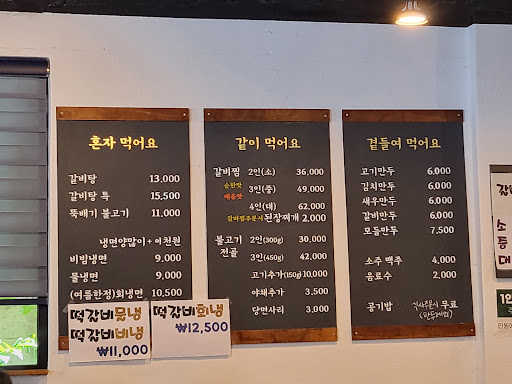 혼자 먹어요
갈비탕 13,000
갈비탕 특 15,500
뚝배기 불고기 11,000
냉면양많이 + 이천원
비빔냉면 9,000
물냉면 9,000
(여름한정)회냉면 10,500
떡갈비물냉
떡갈비비냉
₩11,000
떡갈비회냉
₩12,500
같이 먹어요
갈비찜 2인(소) 36,000
순한맛
매운맛
3인(중) 49,000
4인(대) 62,000
갈비찜주문시 된장찌개 2,000
불고기 전골
2인(300g) 30,000
3인(450g) 42,000
고기추가(150g) 10,000
야채추가 3,500
당면사리 3,000
곁들여 먹어요
고기만두 6,000
김치만두 6,000
새우만두 6,000
갈비만두 6,000
모듬만두 7,500
소주 맥주 4,000
음료수 2,000
공기밥 식사주문시 무료
(만두제외)